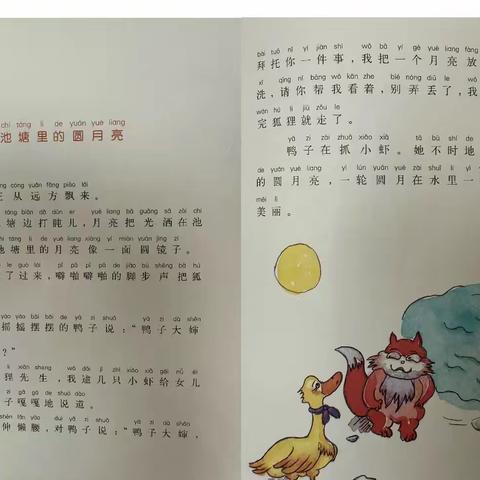 chí táng lǐ de yuán yuè liang
池塘里的圆月亮
cóng yuǎn fāng piāo lái
从远方飘来。
táng biān dǎ dǔn er yuè liang bǎ guāng sǎ zài chí
塘边打盹儿,月亮把光洒在池
táng lǐ de yuè liang xiàng yí miàn yuán jìng zi
塘里的月亮像一面圆镜子。
le guò lái pī pā pī pā de jiǎo bù shēng bǎ hú
了过来,噼啪噼啪的脚步声把狐
yáo yáo bǎi bǎi de yā zi shuō yā zi dà shěn
摇摇摆摆的鸭子说:“鸭子大婶
?”
lí xiān sheng wǒ dǎi jǐ zhī xiǎo xiā gěi nǚ ér
狸先生,我逮几只小虾给女儿
子嘎嘎地说道。
shēn lǎn yāo duì yā zi shuō yā zi dà shěn
伸懒腰,对鸭子说:“鸭子大婶,
bài tuō nǐ yí jiàn shì wǒ bǎ yí gè yuè liang fàng
拜托你一件事,我把一个月亮放
xǐ qǐng nǐ bāng wǒ kān zhe bié nòng diū le wǒ
洗,请你帮我看着,别弄丢了,我
wán hú li jiù zǒu le
完狐狸就走了。
yā zi zài zhuā xiǎo xiā tā bù shí de
鸭子在抓小虾。她不时地
de yuán yuè liang yì lún yuán yuè zài shuǐ lǐ yí
的圆月亮,一轮圆月在水里一
měi lì
美丽。